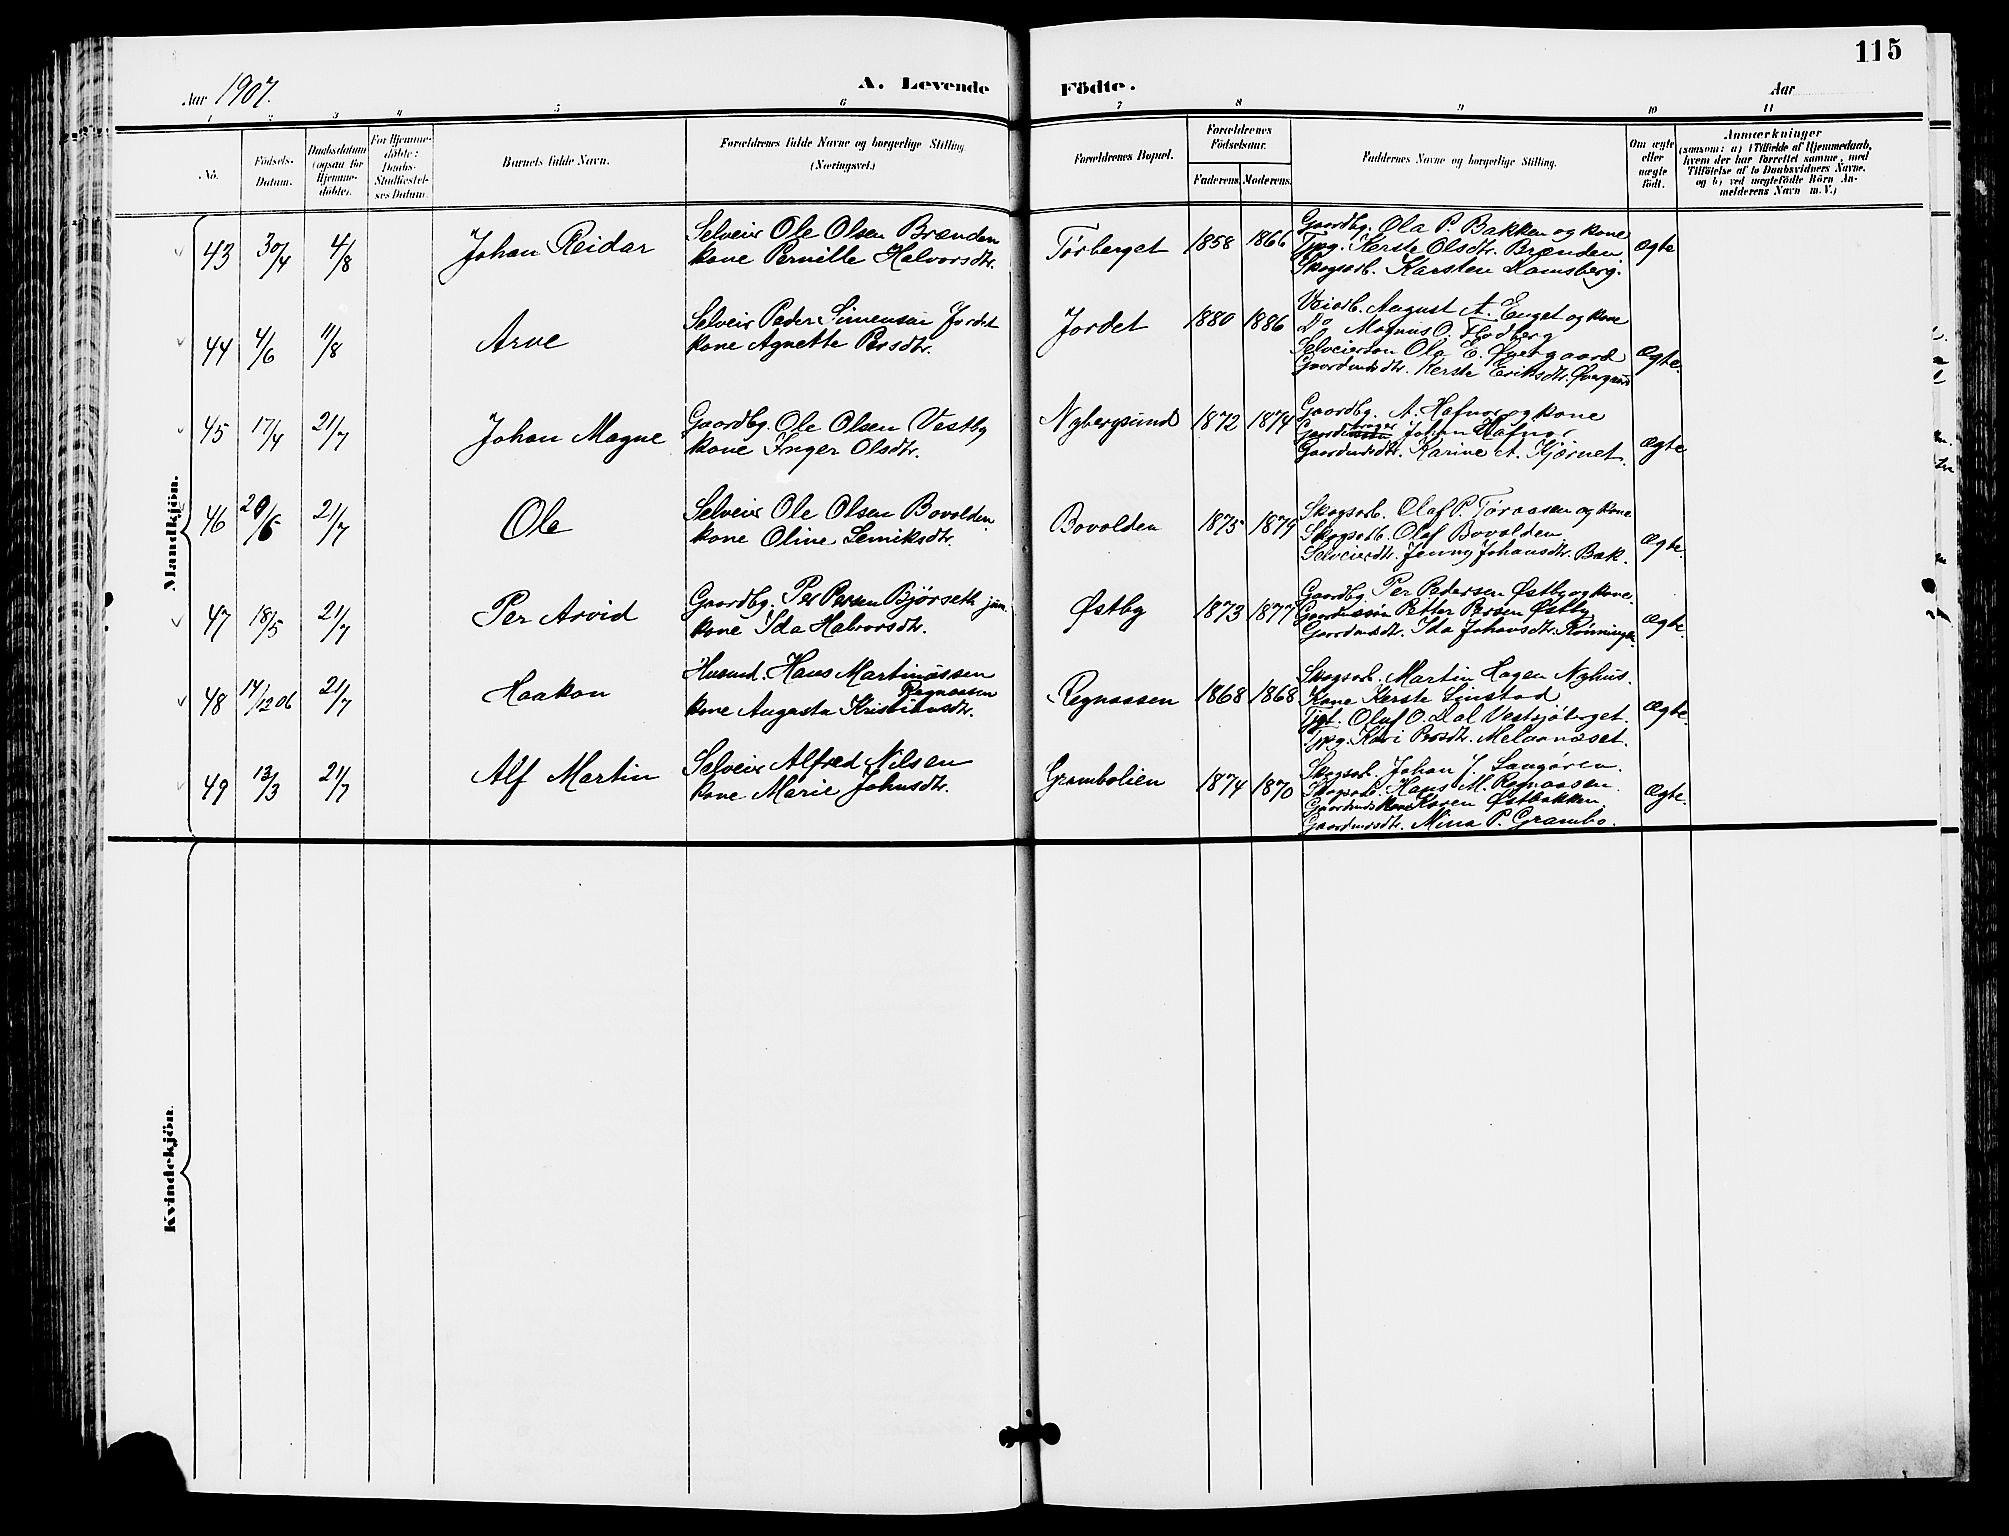 115
Aar 1907.
A. Levende Födte.
Aar
1 2 3 4 5 6 7 8 9 10 11
No.
Födsels-Datum.
Daabsdatum (ogsaa for Hjemmedøbte).
For Hjemmedøbte: Daabs-Stadfæstelses Datum.
Barnets fulde Navn.
Forældrenes fulde Navne og borgerlige Stilling (Næringsvei.)
Forældrenes Bopæl.
Forældrenes Födselsaar.
Faderens. Moderens.
Faddernes Navne og borgerlige Stilling.
Om ægte eller uægte födt.
Anmærkninger
(saasom: a) i Tilfælde af Hjemmedaab,
hvem der har forrettet samme, med
Tilföielse af to Daabsvidners Navne,
og b) ved uægtefödte Börn An-
melderens Navn m. V.)
Mandkjön.
43 30/4 4/8 Johan Reidar
Selveier Ole Olsen Brænden
kone Pernille Halvorsdtr.
Tørberget 1858 1866
Gaardbg. Ola P. Bakken og kone
Tjpg. Kerste Olsdtr. Brænden.
Skogsarb. Karsten Kamsberg.
ægte
44 4/6 11/8 Arve
Selveier Peder Simensen Jordet
kone Agnette Persdtr.
Jordet 1880 1886
Veiarb. August A. Enget og kone
Do Magnus O. Flodberg
Selveiersøn Ola E. Øvergaard
Gaardmdsdtr. Kerste Eriksdtr. Øvergaard
Ægte.
45 17/4 21/7 Johan Magne
Gaardbg. Ole Olsen Vestby
kone Inger Olsdtr.
Nybergsund 1872 1874
Gaardbg. A. Hafnor og kone
Gaardbruger Johan Hafnor
Gaardmdsdtr. Karine A. Kjørnet.
Ægte
46 29/5 21/7 Ole
Selveier Ole Olsen Bovolden
kone Oline Lemiksdtr.
Bovolden 1875 1879
Skogsarb. Olaf P. Tøraasen og kone
Skogsarb. Olaf Bovolden
Selveierdtr. Jenny Johansdtr. Bak.
Ægte.
47 18/5 21/7 Per Arvid
Gaardbg. Per Persen Bjørseth jun.
kone Ida Halvorsdtr.
Østby 1873 1877
Gaardbg. Per Pedersen Østby og kone.
Gaardmssøn Petter Persen Østby
Gaardmdsdtr. Ida Johansdtr. Rønningen.
Ægte.
48 14/12 06 21/7 Haakon
Husmd. Hans Martinussen
Regnaasen
kone Augusta Kristiansdtr.
Regnaasen 1868 1868
Skogsarb. Martin Hagen Nyhus.
Kone Kerste Linstad
Tjgt. Oluf O. Dal Vestsjøberget.
Tjpg. Kari Persdtr. Melaanæset.
Ægte.
49 13/3 21/7 Alf Martin
Selveier Alfred Nilsen
kone Marie Johnsdtr.
Grambolien 1874 1870
Skogsarb. Johan J. Langøren.
Skogsarb. Hans M. Regnaasen.
Gaardmds Kone Karen Østbakken.
Gaardmdsdtr. Mina P. Grambo.
Ægte.
Kvindekjön.